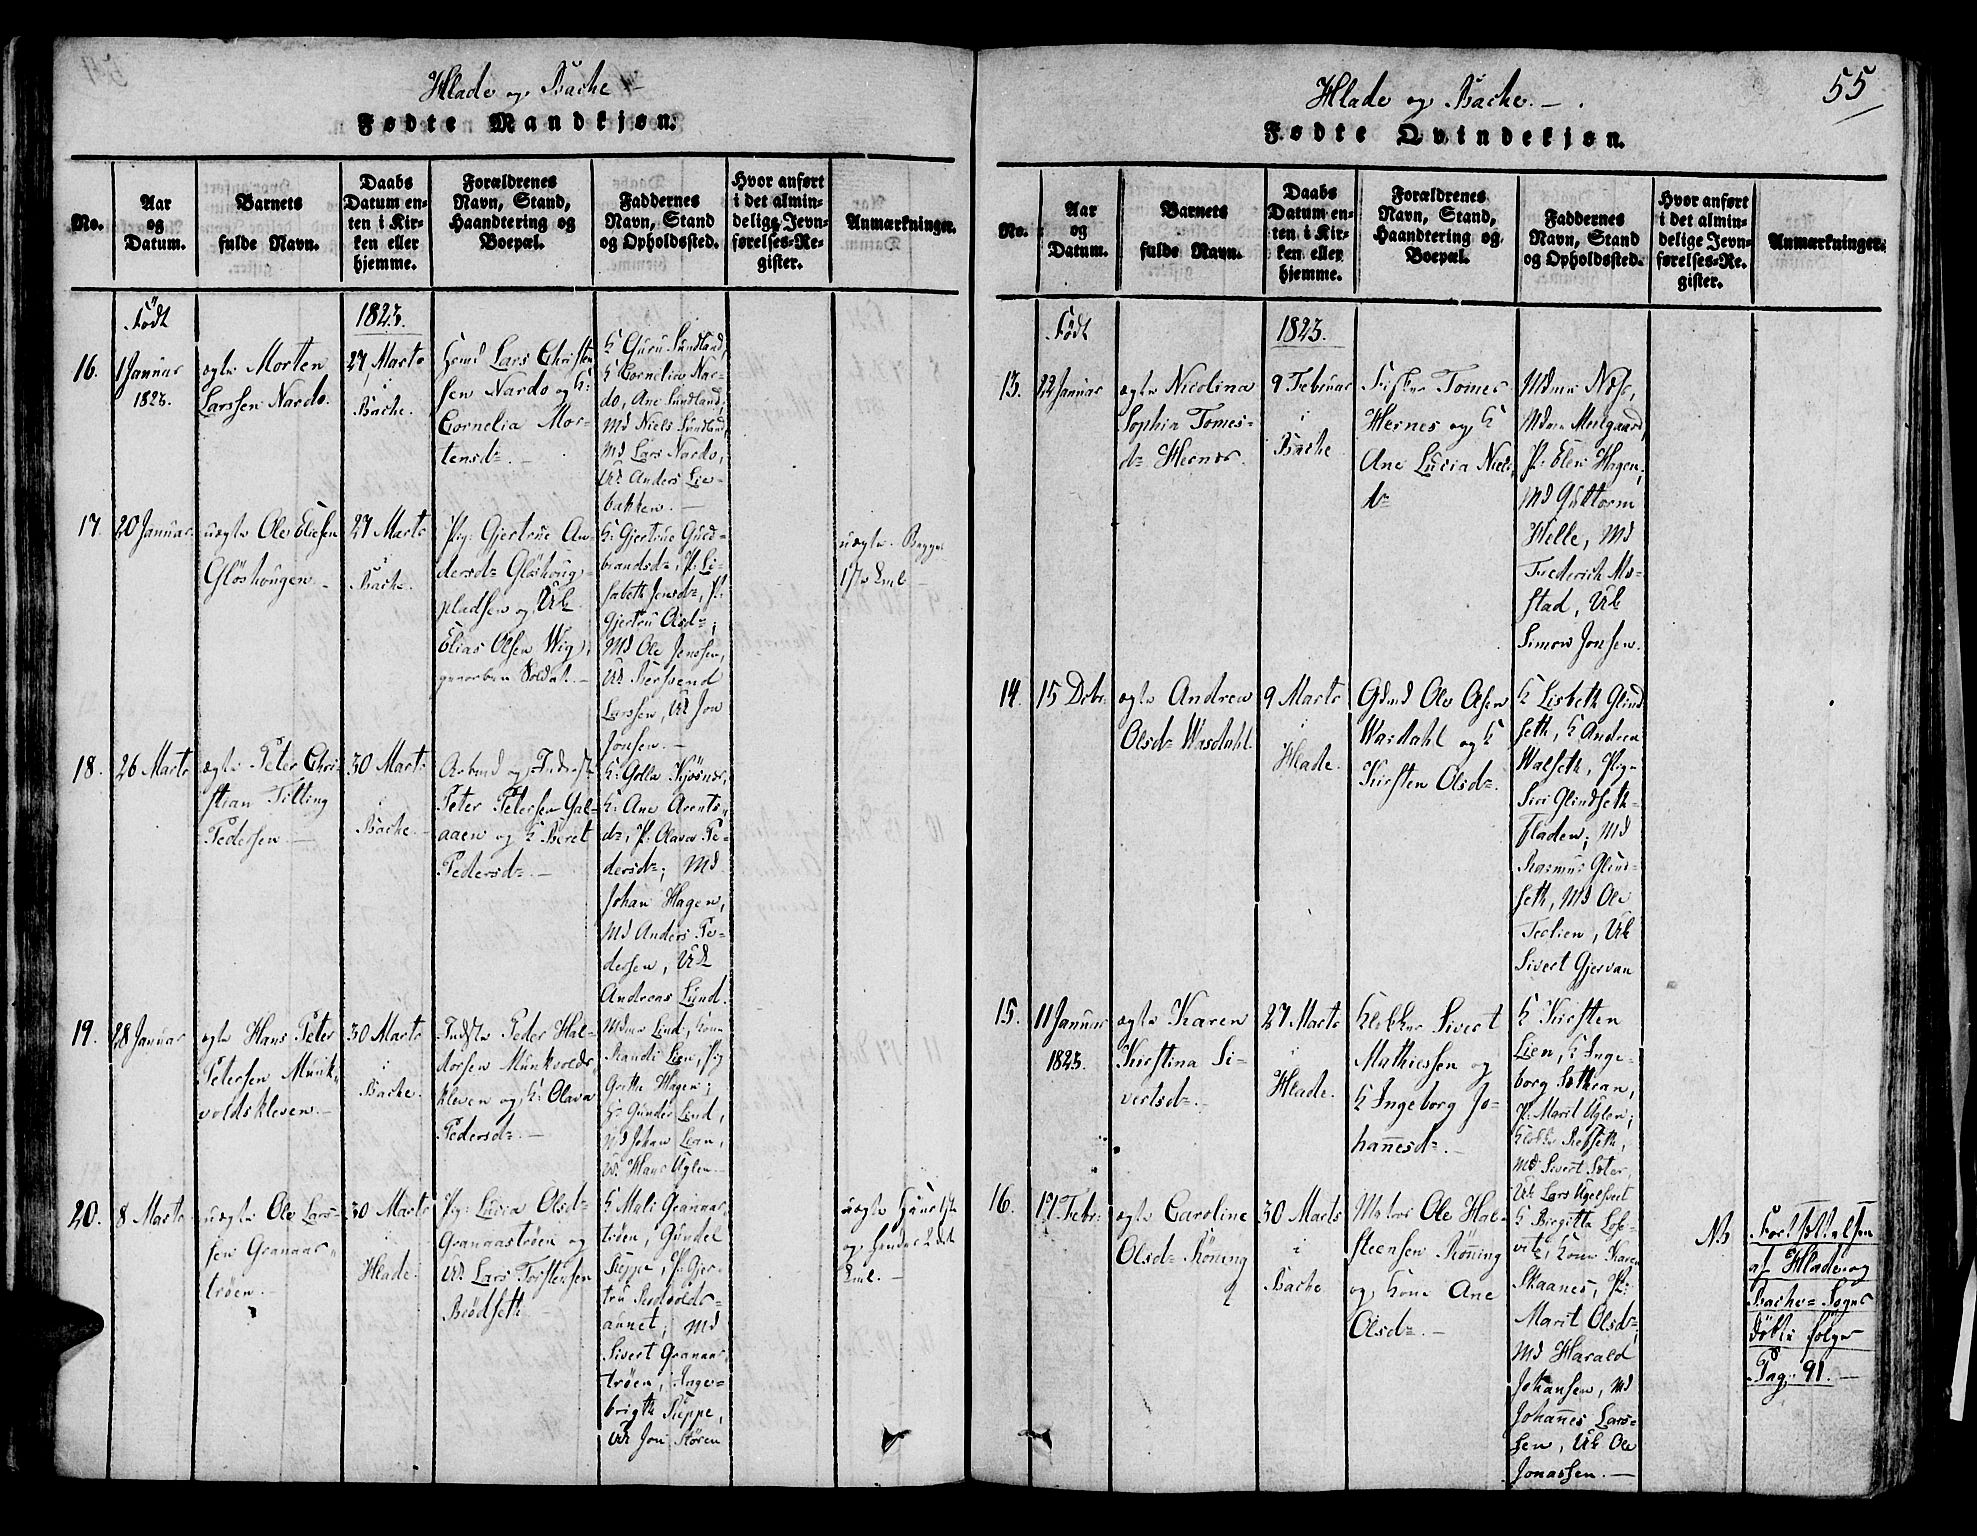 Hlade og Bache
Fødte Mandkjøn.
No.
Aar
og
Datum.
Barnets
fulde Navn.
Daabs
Datum en-
ten i Kir-
ken eller
hjemme.
Forældrenes
Navn, Stand,
Haandtering og
Boepæl.
Faddernes
Navn, Stand
og Opholdssted.
Hvor anført
i det almin-
delige Jevn-
førelses-Re-
gister.
Anmærkninger.
Født
1823.
16.
1 Januar
1823.
ægte Morten
Larssen Nardo.
27 Marts
i
Bache.
Lars Christen
sen Nardo og K:
Cornelia Mor-
tensd=.
K Guru Sundland,
K Cornelia Nar-
do, Ane Sundland,
Md Niels Sundland,
Md Lars Nardo,
Uk Anders Lie-
bakken.
17.
20 Januar
uægte Ole Eliesen
Gløshougen
27 Marts
i
Bache.
Pig: Gjertrue An
dersd= Gløshoug-
pladsen og Uk
Elias Olsen Wig,
Soldat.
K: Gjertrue Guld-
brandsd=, P: Li-
sabeth Jensd=, P:
Gjertru Olsd=;
Md Ole Jenssen,
Uk Bersvend
Larssen, Uk Jon
Jonsen.
uægte. Begges
1ste Leml
18.
26 Marts
ægte Peter Chri-
stian Tilting
Pedersen
30 Marts
i
Bache.
Arbmd og Inderst
Peter Petersen Gal-
aaen og K Beret
Pedersd=.
K: Golla Kjøsnes,
K: Ane Arents-
d=, P: Olava Pe-
dersd=; Md
Johan Hagen,
Md Anders Pe-
dersen, Uk
Andreas Lund.
19.
28 Januar
ægte Hans Peter
Petersen Munk-
voldskleven.
30 Marts
i
Bache.
Indste Peder Hal-
dorsen Munkvolds-
kleven og K: Olava
Pedersd=.
Mdme Lind, Kone
Randi Lien, Pig
Grethe Hagen;
Hr Gunder Lind,
Md Johan Lian,
Uk Hans Uglen.
20.
8 Marts
uægte Ole Lars-
sen Granaas-
trøen.
30 Marts
i
Hlade.
Pig: Lucia Olsd=
Granaastrøen og
Uk Lars Torstensen
Brødseth
K Mali Granaas-
trøen, Gundel
Reppe, P: Gjer-
tru Ranvolds-
aunet; Md
Sivert Granaas-
trøen, Inge-
brigth Reppe,
Uk Jon Støren
uægte Hans 1ste
og hendes 2det
Leml.
55
Hlade og Bache.
Fødte Qvindekjøn.
No.
Aar
og
Datum.
Barnets
fulde Navn.
Daabs
Datum en-
ten i Kir-
ken eller
hjemme.
Forældrenes
Navn, Stand,
Haandtering og
Boepæl.
Faddernes
Navn, Stand
og Opholdssted.
Hvor anført
i det almin-
delige Jevn-
førelses-Re-
gister.
Anmærkninger.
Født
1823.
13.
22 Januar
ægte Nicolina
Sophia Tomes-
d= Hernes.
9 Februar
i
Bache
Fisker Tomes
Hernes og K
Ane Lucia Niels
d=
Mdme Næs,
Mdme Meelgaard,
P: Elen Hagen,
Md Guttorm
Helle, Md
Frederich Mo-
stad, Uk
Simon Jonsen.
14.
15 Debr.
ægte Andrea
Olsd= Wasdahl.
9 Marts
i
Hlade.
Gdmd Ole Olsen
Wasdahl og K
Kirsten Olsd=.
K Lisbeth Glind
seth, K Andrea
Walseth, Pig
Siri Glindseth-
fladen; Md
Rasmus Glind-
seth, Md Ole
Teslien, Uk
Sivert Gjervan
15.
11 Januar
1823.
ægte Karen
Kirstina Si-
vertsd=.
27 Marts
i
Hlade.
Klokker Sivert
Mathiessen og
K Ingeborg Jo-
hannesd=.
K Kirsten
Lien, K Inge-
borg Sæthran,
P: Marit Uglen;
Klokker
Md Sivert Sæter,
Uk Lars Ugelseet
16.
17 Febr:
ægte Caroline
Olsd= Rønning
30 Marts
i
Bache
Matros Ole Hal-
steensen Rønning
og Kone Ane
Olsd=.
K Birgitta
Kone Karen
Skaanes, P:
Marit Olsd=,
Md Harald
Johansen, Md
Johannes Lars-
sen, Uk Ole
Jonassen.
NB
Fortsættelsen
af Hlade og
Bache= Sogns
Døbte følger
Pag: 91.